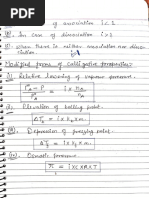 of association i < 1
(2). In case of dissociation i > 1
(3). when there is neither association nor disso-
ciation. i = 1
Modified forms of colligative properties:-
(1). Relative lowering of vapour pressure.
P°A - P / P°A = i x nB / nA
(2). Elevation of boiling point.
ΔTb = i x kb x m.
(3). Depression of freezing point.
ΔTf = i x kf x m.
(4). Osmotic pressure.
π = i x C x R x T